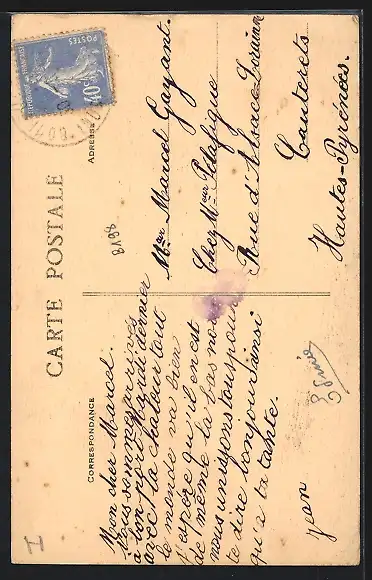 CARTE POSTALE
CORRESPONDANCE
ADRESSE
POSTES
REPUBLIQUE FRANÇAISE
40c
8198
Mon cher Marcel.
Nous sommes arrivés
à bon port Mardi dernier
avec la chaleur tout
le monde va bien
j'espère qu'il en est
de même la bas nous
nous unissons tous pour
te dire bonjour ainsi
qu'a ta tante.
Jean
Mr Marcel Gayant.
Chez Mr Pélafigue
Rue d'Alsace Lorraine
Cauterets
Hautes-Pyrénées.